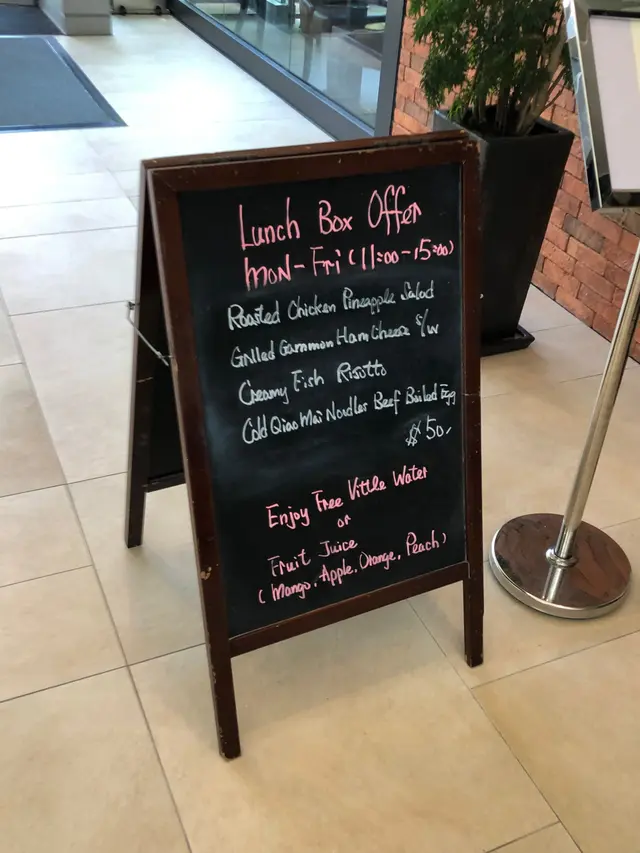 Lunch Box Offer
MON - Fri (11:00 - 15:00)
Roasted Chicken Pineapple Salad
Grilled Gammon Ham Cheese S/W
Creamy Fish Risotto
Cold Qiao Mai Noodles Beef Boiled Egg
$50,
Enjoy Free Vittle Water
or
Fruit Juice
(Mango, Apple, Orange, Peach)